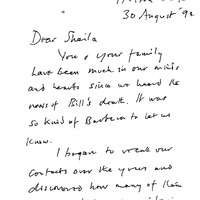 30 August '92
Dear Sheila
You & your family
have been much in our minds
and hearts since we heard the
news of Bill's death. It was
so kind of Barbara to let us
know.
I began to recall our
contacts over the years and
discovered how many of them